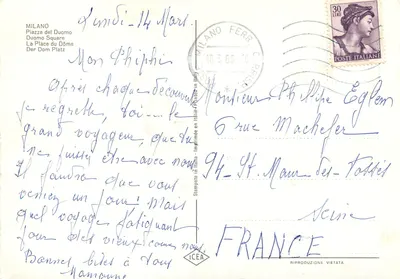 MILANO
Piazza del Duomo
Duomo Square
La Place du Dôme
Der Dom Platz
Lundi - 14 Mars.
Mon Phiphi
Après chaque découverte
je regrette, toi - le
grand voyageur, que tu
ne puisses être avec nous
Il faudra que vous
veniez un jour! Mais
quel voyage fatiguant
pour des vieux comme nous
Bonnes bises à tous
Mamoune
ICEA
MILANO FERR.
30
POSTE ITALIANE
Monsieur Philippe
6 rue
94 - St. Maur-des-Fossés
Seine
FRANCE
RIPRODUZIONE VIETATA